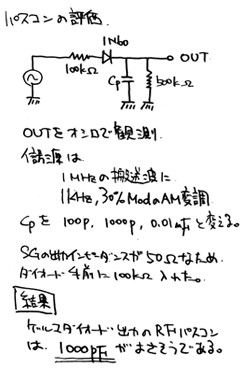 パスコンの評価.
1N60
OUT
100kΩ
Cp
500kΩ
OUTをオシロで観測.
信号源は
1MHzの搬送波に
1KHz, 30% ModのAM変調
Cpを 100p, 1000p, 0.01μFと変える。
SGの出力インピーダンスが50Ωなため
ダイオード手前に100kΩ入れた。
結果
ゲルマダイオード出力のRFパスコン
は、1000pFがよさそうである。